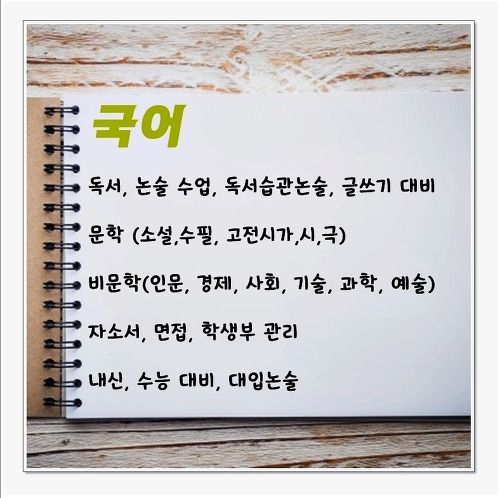 국어
독서, 논술 수업, 독서습관논술, 글쓰기 대비
문학 (소설,수필, 고전시가,시,극)
비문학(인문, 경제, 사회, 기술, 과학, 예술)
자소서, 면접, 학생부 관리
내신, 수능 대비, 대입논술